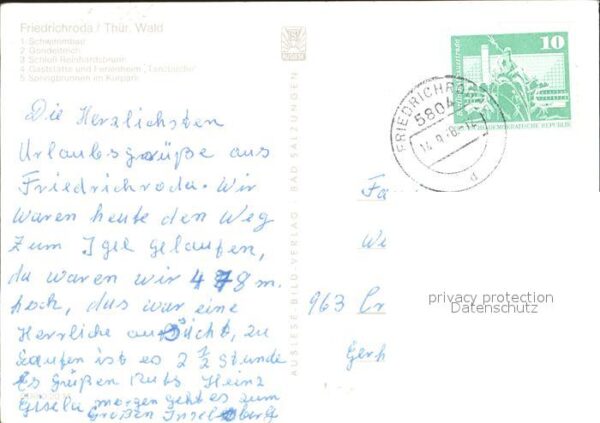 Friedrichroda / Thür. Wald
1 Schwimmbad
2 Gondelteich
3 Schloß Reinhardsbrunn
4 Gaststätte und Ferienheim „Tanzbuche"
5 Springbrunnen im Kurpark
Die Herzlichsten
Urlaubsgrüße aus
Friedrichroda. Wir
waren heute den Weg
zum Igel gelaufen,
da waren wir 478 m.
hoch, das war eine
Herrliche aussicht, zu
Laufen ist es 2 1/2 Stunde
Es Grüßen Ruts Heinz
Gisela morgen geht es zum
Großen Inselsberg
AUSLESE-BILD-VERLAG · BAD SALZUNGEN
10
DEUTSCHE DEMOKRATISCHE REPUBLIK
FRIEDRICHRODA
5804
d
Fa
We
963 Cr
Gerh
privacy protection
Datenschutz